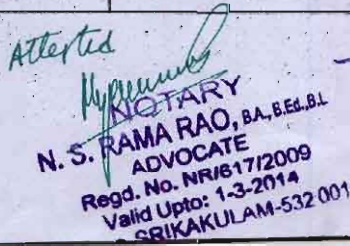 Attested
NOTARY
N. S. RAMA RAO, B.A., B.Ed., B.L
ADVOCATE
Regd. No. NR/617/2009
Valid Upto: 1-3-2014
SRIKAKULAM-532 001